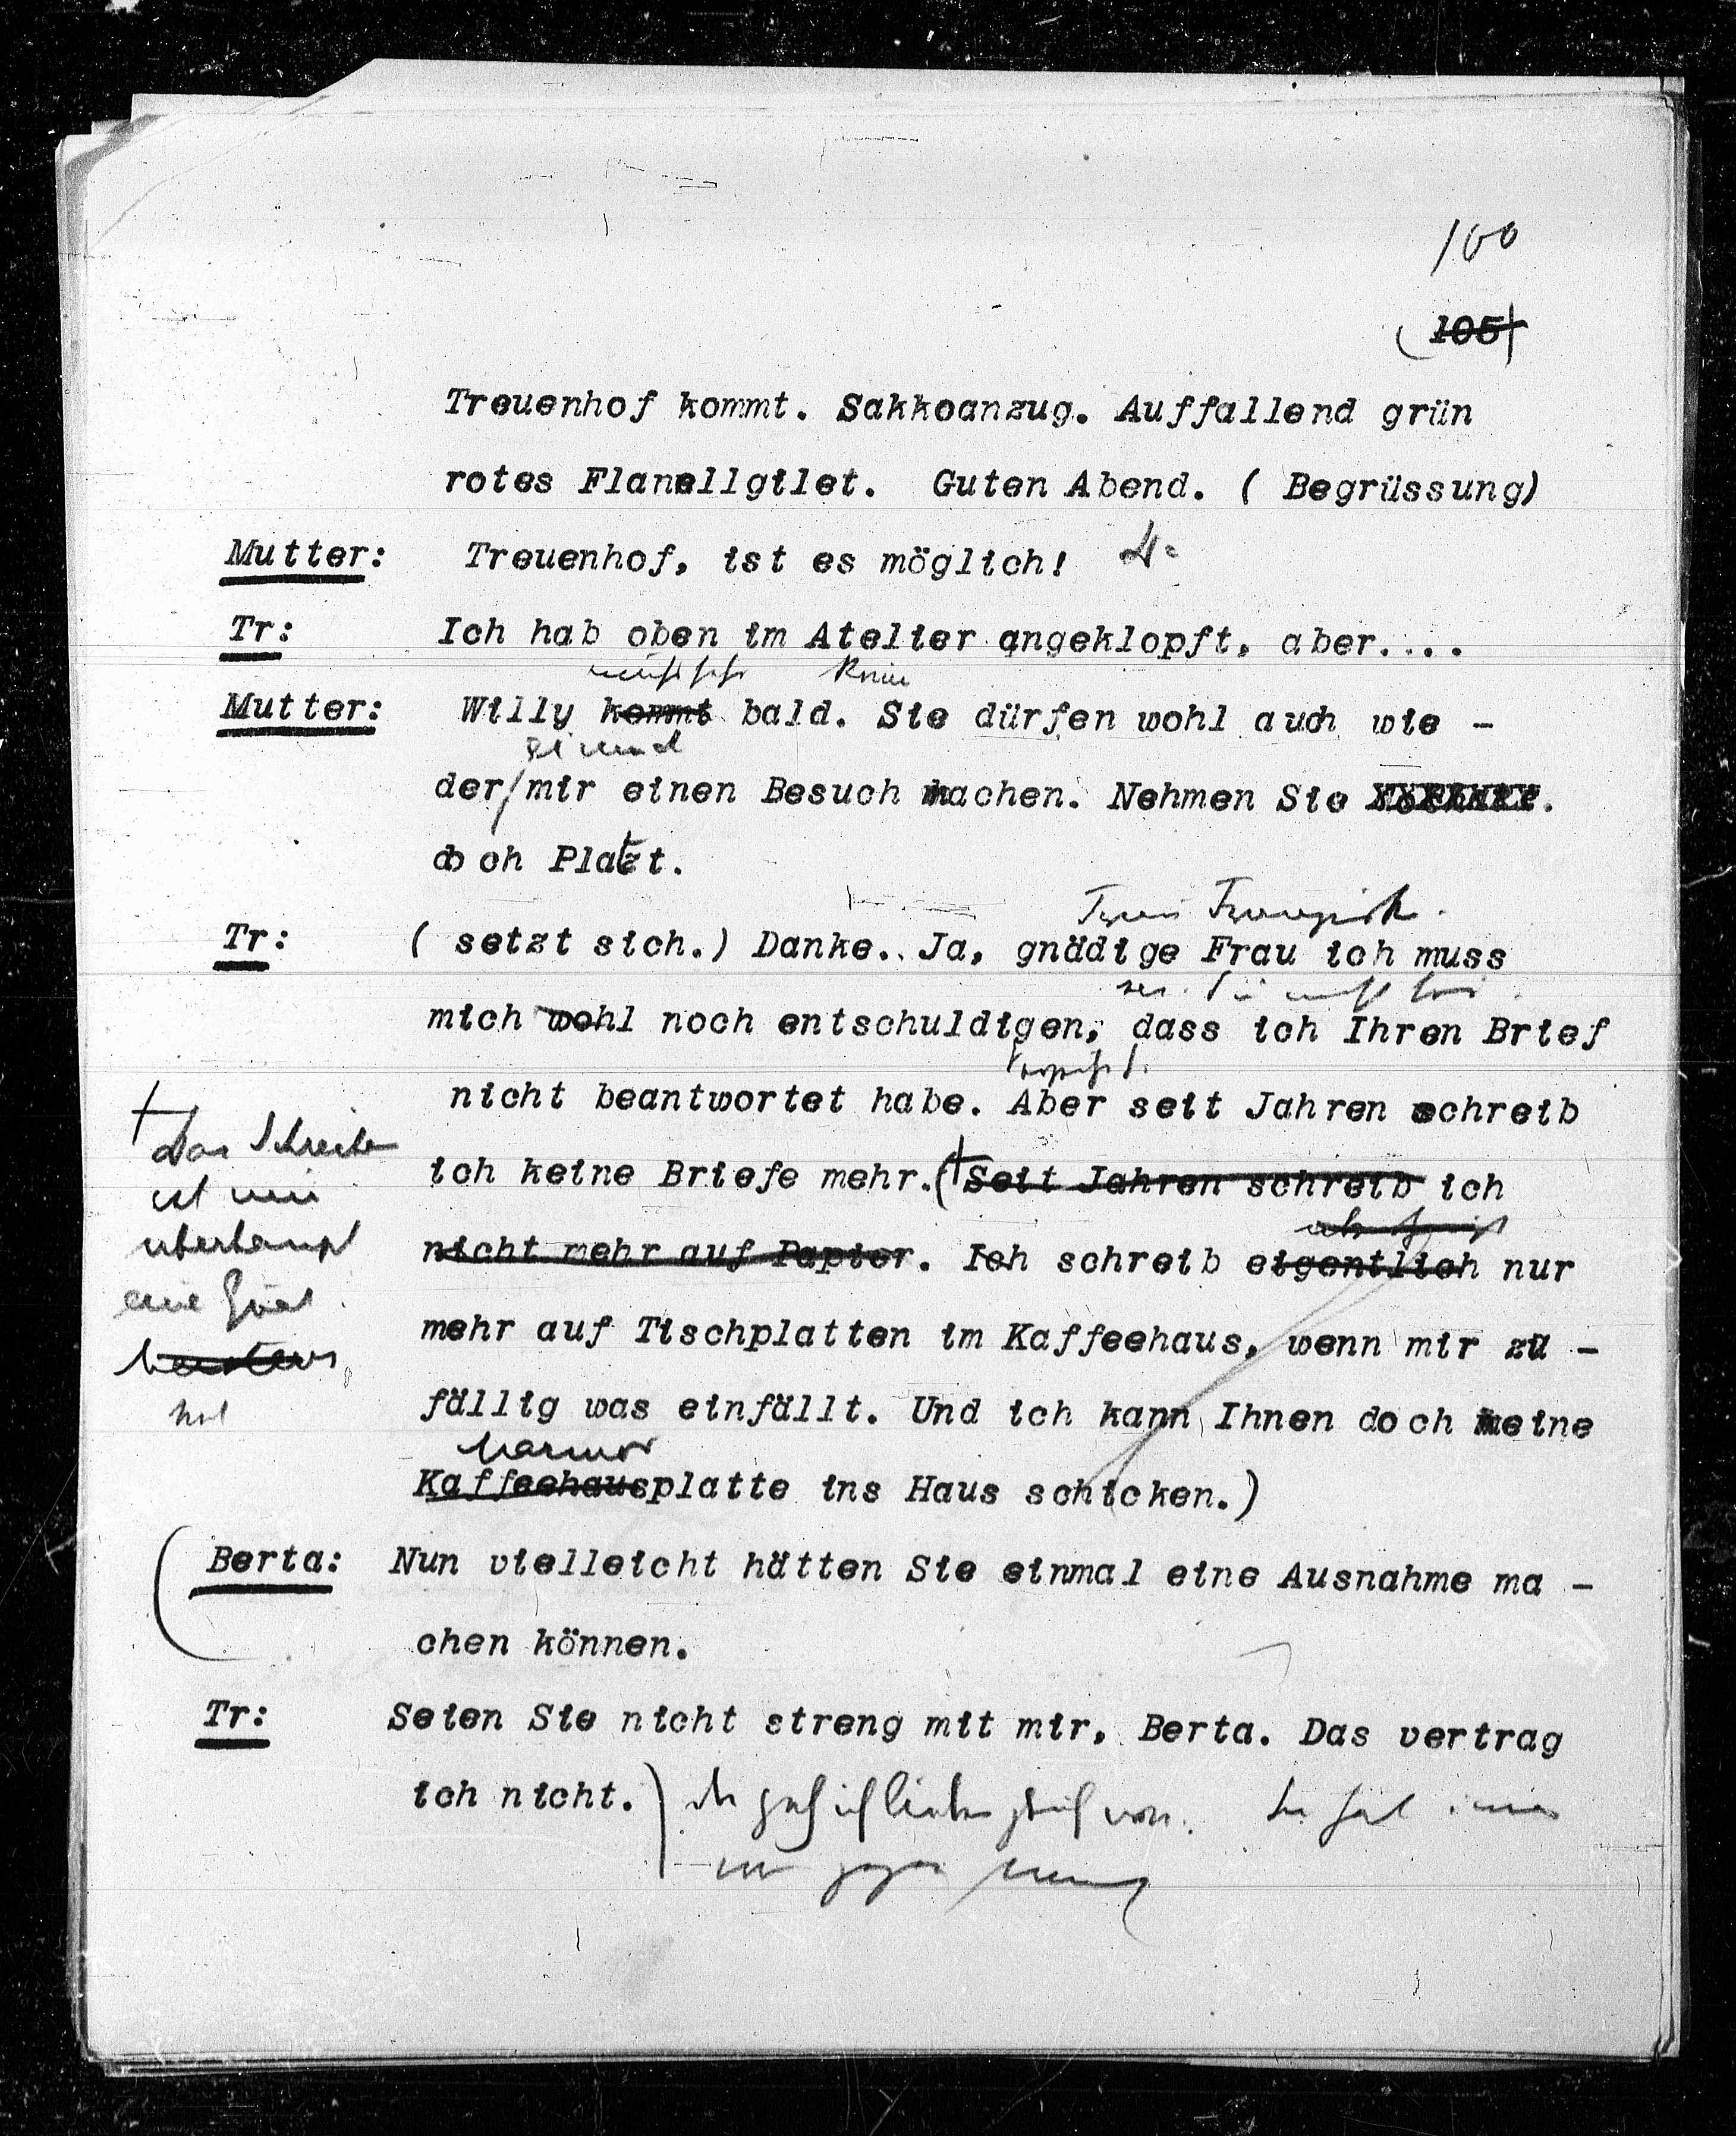 100
105
Treuenhof kommt. Sakkoanzug. Auffallend grün
rotes Flanellgilet. Guten Abend. ( Begrüssung)
Mutter: Treuenhof, ist es möglich!
Tr: Ich hab oben im Atelier angeklopft, aber....
Mutter: Willy kommt bald. Sie dürfen wohl auch wie -
einmal
der/mir einen Besuch machen. Nehmen Sie
doch Platzt.
Tr: ( setzt sich.) Danke.. Ja, gnädige Frau ich muss
mich wohl noch entschuldigen, dass ich Ihren Brief
nicht beantwortet habe. Aber seit Jahren schreib
ich keine Briefe mehr.( Seit Jahren schreib ich
nicht mehr auf Papier. Ich schreib eigentlich nur
mehr auf Tischplatten im Kaffeehaus, wenn mir zu -
fällig was einfällt. Und ich kann Ihnen doch meine
Marmor
Kaffeehausplatte ins Haus schicken.)
das Schreiben
ist mir
überhaupt
eine Qual
Berta: Nun vielleicht hätten Sie einmal eine Ausnahme ma -
chen können.
Tr: Seien Sie nicht streng mit mir, Berta. Das vertrag
ich nicht.)